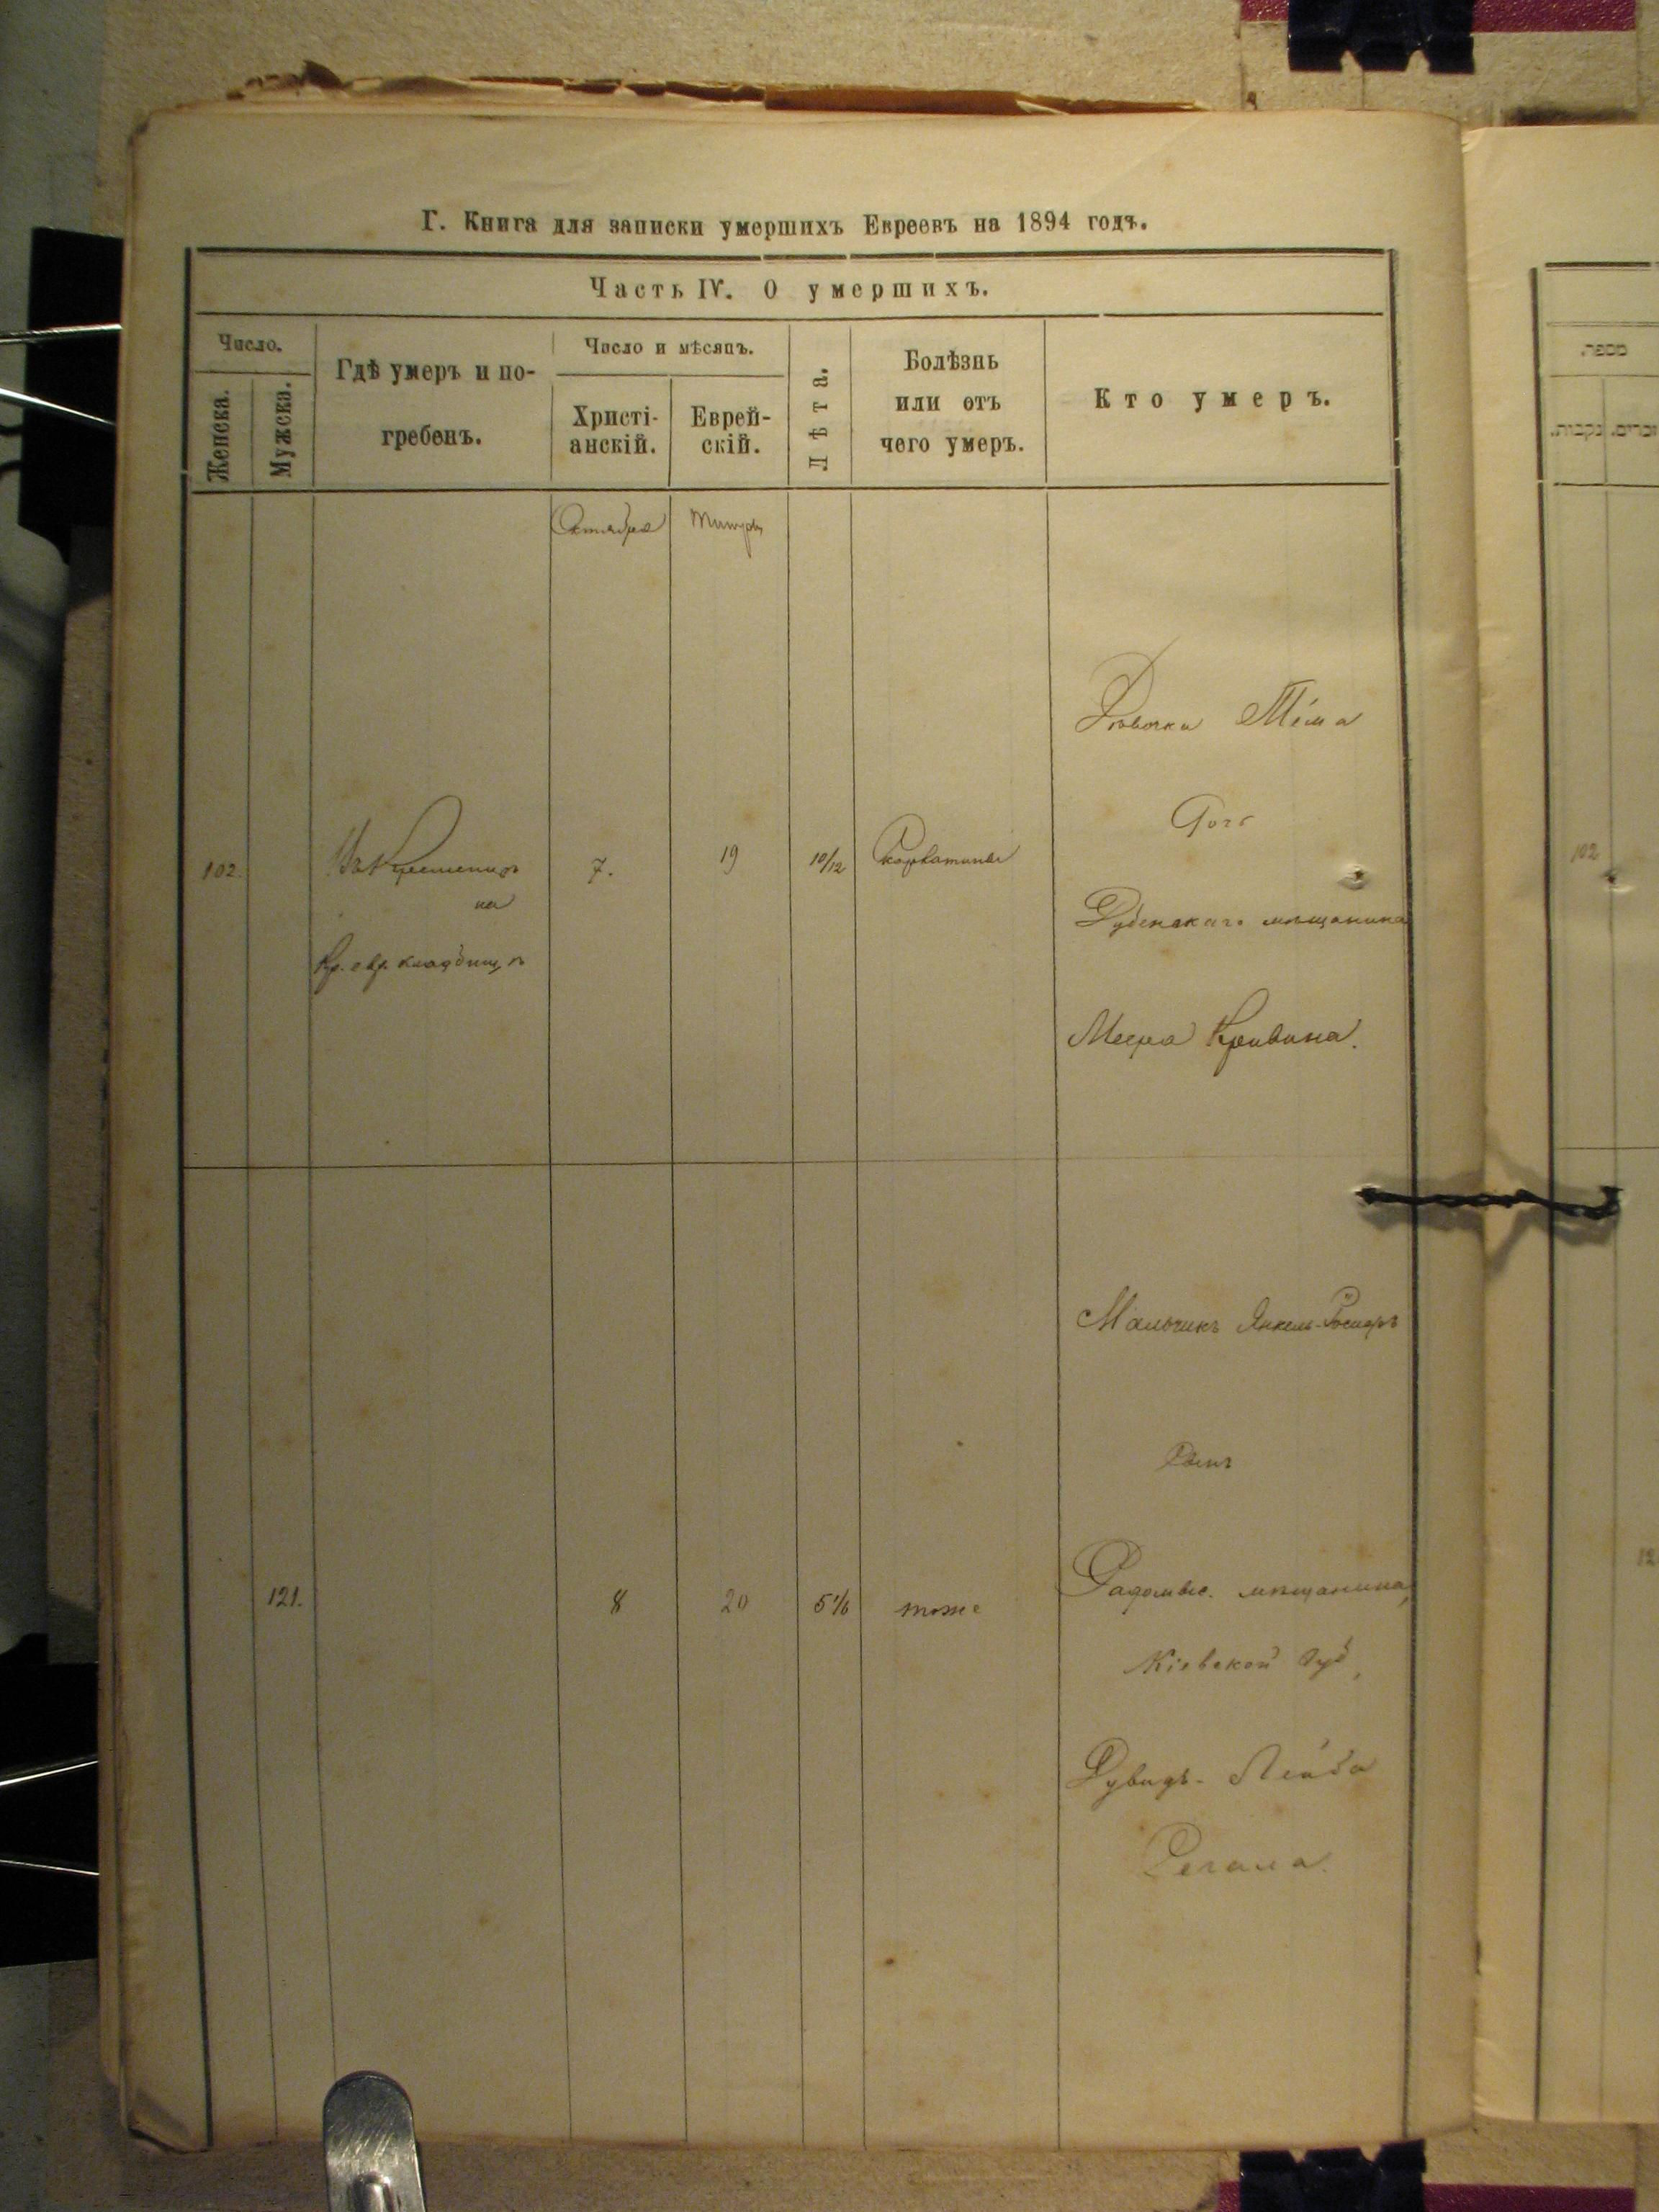 Г. Книга для записки умершихъ Евреевъ на 1894 годъ.
Часть IV. О умершихъ.
Число.
Женска.
Мужска.
Гдѣ умеръ и по-
гребенъ.
Число и мѣсяцъ.
Христі-
анскій.
Еврей-
скій.
Лѣта.
Болѣзнь
или отъ
чего умеръ.
Кто умеръ.
Октября
Тишри
102.
на
Кр. евр. кладбищѣ
7.
19
10/12
Скарлатины
Дѣвочка
Дочь
Дубенскаго мѣщанина
Меера Кривина.
121.
8
20
5 1/6
тоже
Мальчикъ Янкель-
Сынъ
Радомыс. мѣщанина,
Кіевской губ,
Дувидъ-Лейба
מספר.
זכרים.
נקבות.
102
12